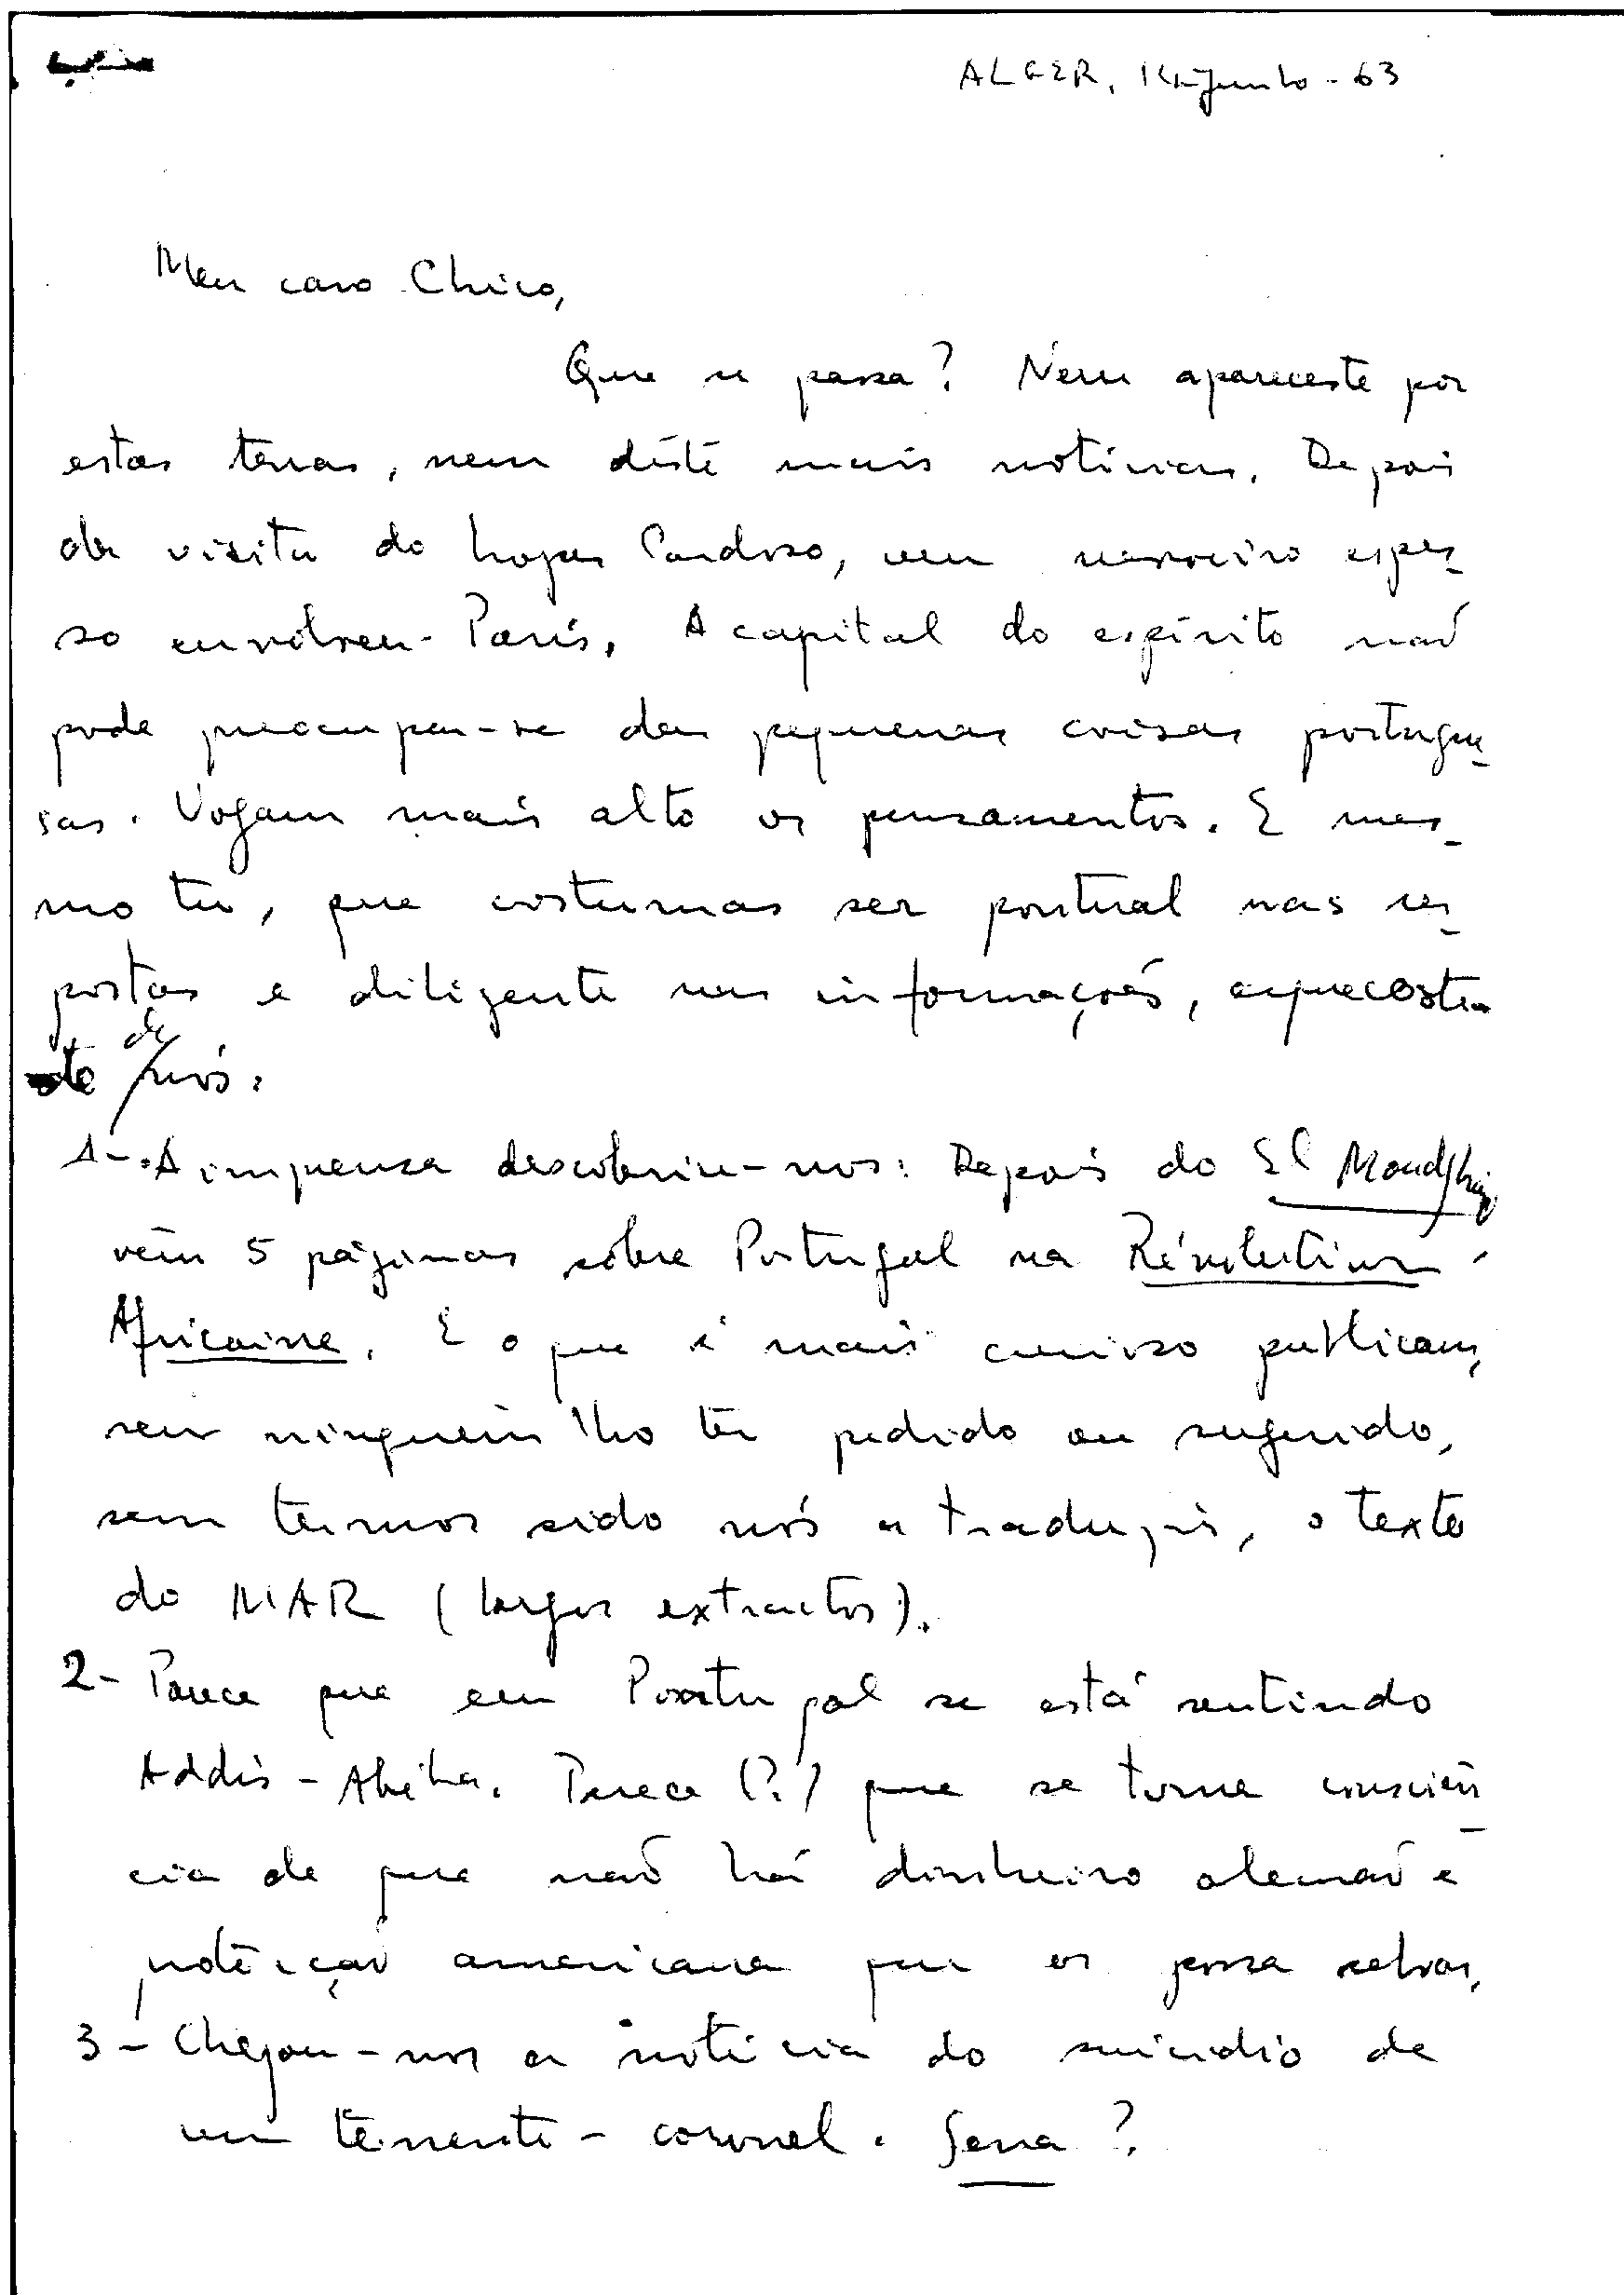 ALGER, 14-Junho-63
Meu caro Chico,
Que se passa? Nem apareceste por
estas terras, nem déste mais notícias. Depois
da visita do Lopes Cardoso, um nevoeiro espes-
so envolveu Paris. A capital do espírito não
pode preocupar-se das pequenas coisas portugue-
sas. Vogam mais alto os pensamentos. E mes-
mo tu, que costumas ser pontual nas res-
postas e diligente nas informações, esqueceste-
te de nós.
1-. A imprensa descobriu-nos: Depois do El Moudjhaid
vêm 5 páginas sôbre Portugal na Révolution-
Africaine. E o que é mais curioso publicam,
sem ninguém lho ter pedido ou sugerido,
sem termos sido nós a traduzir, o texto
do MAR (largos extractos).
2- Parece que em Portugal se está sentindo
Addis-Abéba. Parece (?) que se tome consciên-
cia de que não há dinheiro alemão e
protecção americana que os possa salvar.
3- Chegou-nos a notícia do suicídio de
um tenente-coronel. Sena?